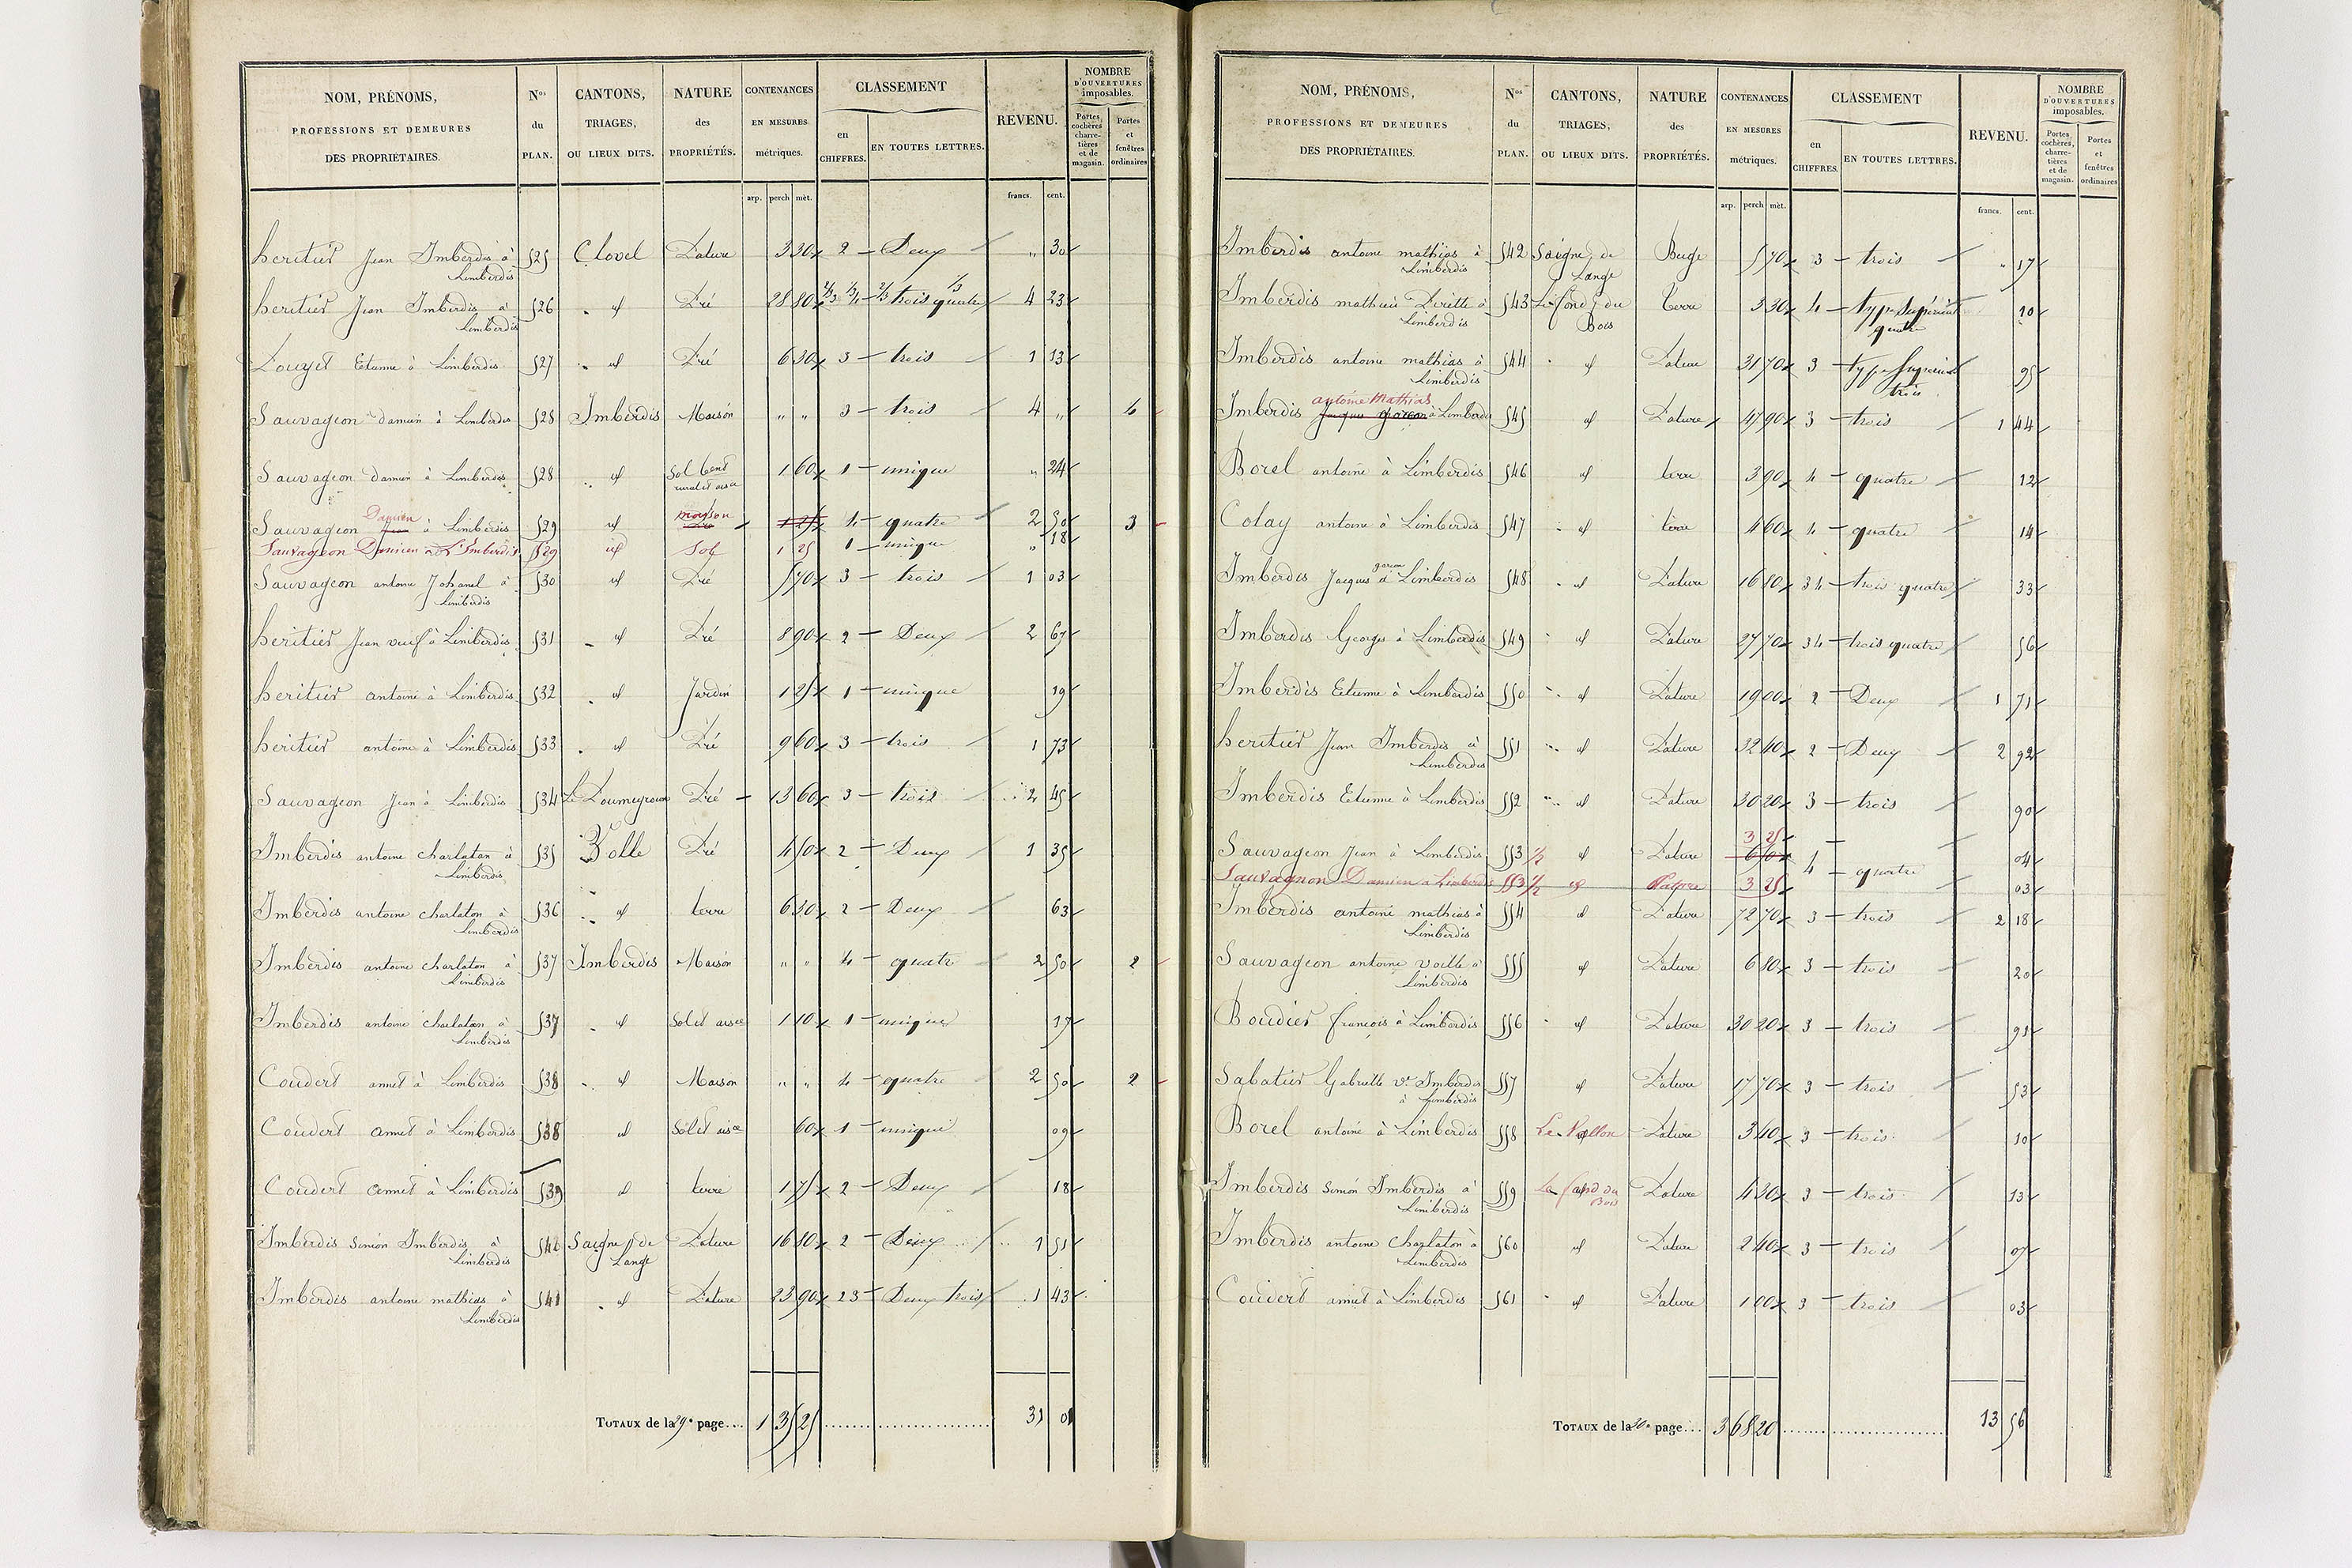 NOM, PRÉNOMS, PROFESSIONS ET DEMEURES DES PROPRIÉTAIRES. Nos du PLAN. CANTONS, TRIAGES, OU LIEUX DITS. NATURE des PROPRIÉTÉS. CONTENANCES EN MESURES métriques. CLASSEMENT en CHIFFRES. EN TOUTES LETTRES. REVENU. NOMBRE D'OUVERTURES imposables. Portes cochères, charretières et de magasin. Portes et fenêtres ordinaires
arp. perch mèt. francs. cent.
heritier Jean Imberdis à Limberdis 525 Clovel Pature 3 30 2 Deux " 30
heritier Jean Imberdis à Limberdis 526 id Pré 28 80 2/3 3 1/3 4 2/3 trois 1/3 quatre 4 23
Pouyet Etienne à Limberdis 527 id Pré 6 30 3 trois 1 13
Sauvageon damien à Limberdis 528 Imberdis Maison " " 3 trois 4 " 6
Sauvageon damien à Limberdis 528 id 1 60 1 unique " 24
Sauvageon Damien à Limberdis 529 id maison 1 25 4 quatre 2 50 3
Sauvageon Damien a L'Imberdis 529 id Sol 1 25 1 unique " 18
Sauvageon antoine Johanel à Limberdis 530 id Pré 5 70 3 trois 1 03
heritier Jean veuf à Limberdis 531 id Pré 8 90 2 Deux 2 67
heritier antoine à Limberdis 532 id Jardin 1 25 1 unique 19
heritier antoine à Limberdis 533 id Pré 9 60 3 trois 1 73
Sauvageon Jean à Limberdis 534 Pré 13 60 3 trois 2 45
Imberdis antoine charlatan à Limberdis 535 Pré 4 50 2 Deux 1 35
Imberdis antoine charlatan à Limberdis 536 id terre 6 30 2 Deux 63
Imberdis antoine charlatan à Limberdis 537 Imberdis Maison " " 4 quatre 2 50 2
Imberdis antoine charlatan à Limberdis 537 id Sol et aisce 1 10 1 unique 17
Coudert amet à Limberdis 538 id Maison " " 4 quatre 2 50 2
Coudert amet à Limberdis 538 id Sol et aisce 60 1 unique 09
Coudert amet à Limberdis 539 id terre 1 75 2 Deux 18
Imberdis Simon Imberdis à Limberdis 540 Saigne de Lange Pature 16 80 2 Deux 1 51
Imberdis antoine mathias à Limberdis 541 id Pature 23 90 23 Deux trois 1 43
TOTAUX de la 29e page.... 1 35 25 31 01
NOM, PRÉNOMS, PROFESSIONS ET DEMEURES DES PROPRIÉTAIRES. Nos du PLAN. CANTONS, TRIAGES, OU LIEUX DITS. NATURE des PROPRIÉTÉS. CONTENANCES EN MESURES métriques. CLASSEMENT en CHIFFRES. EN TOUTES LETTRES. REVENU. NOMBRE D'OUVERTURES imposables. Portes cochères, charretières et de magasin. Portes et fenêtres ordinaires
arp. perch mèt. francs. cent.
Imberdis antoine mathias à Limberdis 542 Saigne de Lange Buge 5 70 3 trois " 17
Imberdis mathieu à Limberdis 543 Le fond du Bois terre 3 30 4 type Supérieur quatre 10
Imberdis antoine mathias à Limberdis 544 id Pature 31 70 3 type Supérieur trois 95
Imberdis antoine Mathias à Limberdis 545 id Pature 47 90 3 trois 1 44
Borel antoine à Limberdis 546 id terre 3 90 4 quatre 12
Colay antoine à Limberdis 547 id terre 4 60 4 quatre 14
Imberdis Jacques garcon à Limberdis 548 id Pature 16 80 34 trois quatre 33
Imberdis Georges à Limberdis 549 id Pature 27 70 34 trois quatre 56
Imberdis Etienne à Limberdis 550 id Pature 19 00 2 Deux 1 71
heritier Jean Imberdis à Limberdis 551 id Pature 32 40 2 Deux 2 92
Imberdis Etienne à Limberdis 552 id Pature 30 20 3 trois 90
Sauvageon Jean à Limberdis 553 1/2 id Pature 3 25 4 quatre 04
Sauvagnon Damien a Limberdis 553 1/2 id Patpre 3 25 03
Imberdis antoine mathias à Limberdis 554 id Pature 72 70 3 trois 2 18
Sauvageon antoine voelle à Limberdis 555 id Pature 6 80 3 trois 20
Boudier francois à Limberdis 556 id Pature 30 20 3 trois 91
Sabatier Gabrielle ve Imberdis à Limberdis 557 id Pature 17 70 3 trois 53
Borel antoine à Limberdis 558 Le Vallon Pature 3 40 3 trois 10
Imberdis Simon Imberdis à Limberdis 559 Le fond du Bois Pature 4 30 3 trois 13
Imberdis antoine Charlatan à Limberdis 560 id Pature 2 40 3 trois 07
Coudert amet à Limberdis 561 id Pature 1 00 3 trois 03
TOTAUX de la 30e page.... 3 68 20 13 56